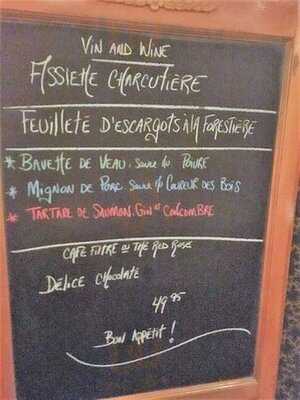 Vin and Wine
Assiette Charcutière
Feuilleté d'escargots à la forestière
* Bavette de Veau, Sauce au Poivre
* Mignon de Porc, Sauce Coureur des Bois
* Tartare de Saumon, Gin et Concombre
Café Filtre ou Thé Red Rose
Délice Chocolaté
49 95
Bon Appétit!